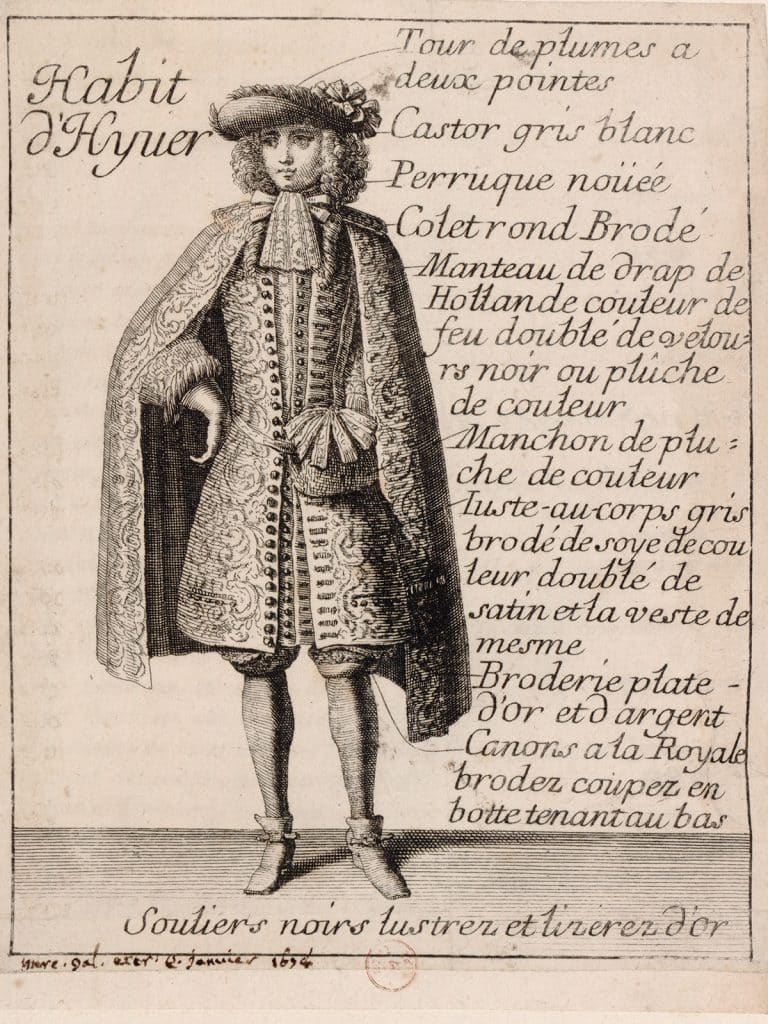 Habit
d'Hyuer
Tour de plumes a
deux pointes
Castor gris blanc
Perruque noüeé
Colet rond Brodé
Manteau de drap de
Hollande couleur de
feu doublé de velou-
rs noir ou plûche
de couleur
Manchon de plu=
che de couleur
Iuste-au-corps gris
brodé de soye de cou
leur doublé de
satin et la veste de
mesme
Broderie plate -
d'Or et d argent
Canons a la Royale
brodez coupez en
botte tenant au bas
Souliers noirs lustrez et lizerez d'Or
janvier